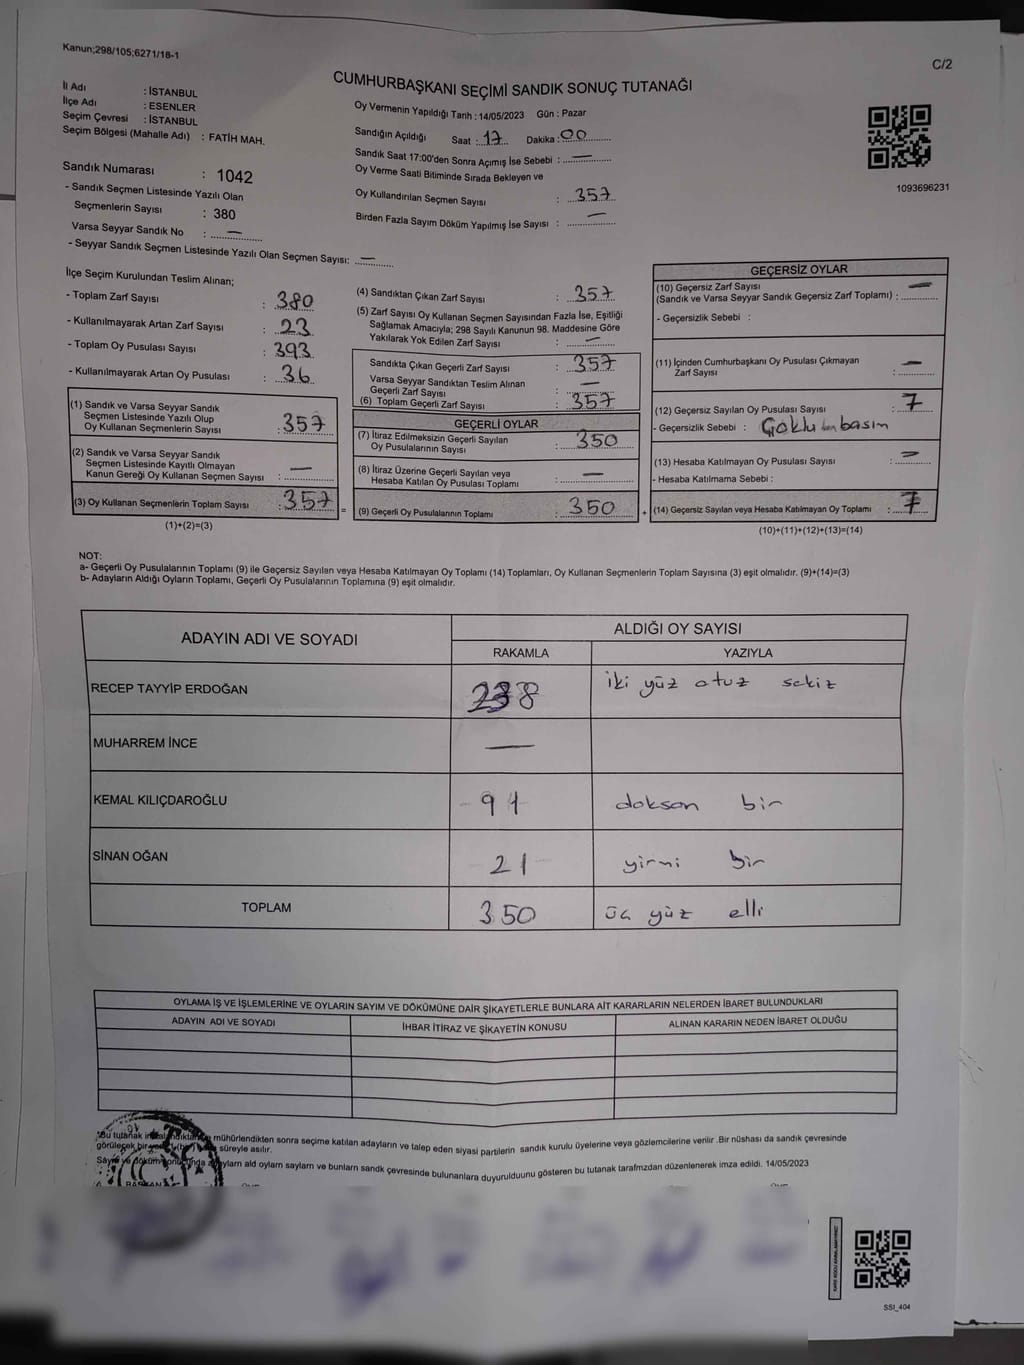 Kanun;298/105;6271/18-1
C/2
CUMHURBAŞKANI SEÇİMİ SANDIK SONUÇ TUTANAĞI
İl Adı : İSTANBUL
İlçe Adı : ESENLER
Seçim Çevresi : İSTANBUL
Seçim Bölgesi (Mahalle Adı) : FATİH MAH.
Oy Vermenin Yapıldığı Tarih : 14/05/2023 Gün : Pazar
Sandığın Açıldığı Saat : 17 Dakika : 00
Sandık Saat 17:00'den Sonra Açımış İse Sebebi : —
Oy Verme Saati Bitiminde Sırada Bekleyen ve
Oy Kullandırılan Seçmen Sayısı : 357
Birden Fazla Sayım Döküm Yapılmış İse Sayısı : —
1093696231
Sandık Numarası : 1042
- Sandık Seçmen Listesinde Yazılı Olan
Seçmenlerin Sayısı : 380
Varsa Seyyar Sandık No : —
- Seyyar Sandık Seçmen Listesinde Yazılı Olan Seçmen Sayısı: —
İlçe Seçim Kurulundan Teslim Alınan;
- Toplam Zarf Sayısı : 380
- Kullanılmayarak Artan Zarf Sayısı : 23
- Toplam Oy Pusulası Sayısı : 393
- Kullanılmayarak Artan Oy Pusulası : 36
(1) Sandık ve Varsa Seyyar Sandık
Seçmen Listesinde Yazılı Olup
Oy Kullanan Seçmenlerin Sayısı : 357
(2) Sandık ve Varsa Seyyar Sandık
Seçmen Listesinde Kayıtlı Olmayan
Kanun Gereği Oy Kullanan Seçmen Sayısı : —
(3) Oy Kullanan Seçmenlerin Toplam Sayısı : 357 =
(1)+(2)=(3)
(4) Sandıktan Çıkan Zarf Sayısı : 357
(5) Zarf Sayısı Oy Kullanan Seçmen Sayısından Fazla İse, Eşitliği
Sağlamak Amacıyla; 298 Sayılı Kanunun 98. Maddesine Göre
Yakılarak Yok Edilen Zarf Sayısı : —
Sandıkta Çıkan Geçerli Zarf Sayısı : 357
Varsa Seyyar Sandıktan Teslim Alınan
Geçerli Zarf Sayısı : —
(6) Toplam Geçerli Zarf Sayısı : 357
GEÇERLİ OYLAR
(7) İtiraz Edilmeksizin Geçerli Sayılan
Oy Pusulalarının Sayısı : 350
(8) İtiraz Üzerine Geçerli Sayılan veya
Hesaba Katılan Oy Pusulası Toplamı : —
(9) Geçerli Oy Pusulalarının Toplamı : 350 +
GEÇERSİZ OYLAR
(10) Geçersiz Zarf Sayısı
(Sandık ve Varsa Seyyar Sandık Geçersiz Zarf Toplamı) : —
- Geçersizlik Sebebi :
(11) İçinden Cumhurbaşkanı Oy Pusulası Çıkmayan
Zarf Sayısı : —
(12) Geçersiz Sayılan Oy Pusulası Sayısı : 7
- Geçersizlik Sebebi : Çoklu basım
(13) Hesaba Katılmayan Oy Pusulası Sayısı : —
- Hesaba Katılmama Sebebi :
(14) Geçersiz Sayılan veya Hesaba Katılmayan Oy Toplamı : 7
(10)+(11)+(12)+(13)=(14)
NOT:
a- Geçerli Oy Pusulalarının Toplamı (9) ile Geçersiz Sayılan veya Hesaba Katılmayan Oy Toplamı (14) Toplamları, Oy Kullanan Seçmenlerin Toplam Sayısına (3) eşit olmalıdır. (9)+(14)=(3)
b- Adayların Aldığı Oyların Toplamı, Geçerli Oy Pusulalarının Toplamına (9) eşit olmalıdır.
ADAYIN ADI VE SOYADI
ALDIĞI OY SAYISI
RAKAMLA YAZIYLA
RECEP TAYYİP ERDOĞAN 238 iki yüz otuz sekiz
MUHARREM İNCE —
KEMAL KILIÇDAROĞLU 91 doksan bir
SİNAN OĞAN 21 yirmi bir
TOPLAM 350 üç yüz elli
OYLAMA İŞ VE İŞLEMLERİNE VE OYLARIN SAYIM VE DÖKÜMÜNE DAİR ŞİKAYETLERLE BUNLARA AİT KARARLARIN NELERDEN İBARET BULUNDUKLARI
ADAYIN ADI VE SOYADI İHBAR İTİRAZ VE ŞİKAYETİN KONUSU ALINAN KARARIN NEDEN İBARET OLDUĞU
"Bu tutanak mühürlendikten sonra seçime katılan adayların ve talep eden siyasi partilerin sandık kurulu üyelerine veya gözlemcilerine verilir .Bir nüshası da sandık çevresinde
görülecek bir süreyle asılır.
ald oylarn saylarn ve bunlarn sandk çevresinde bulunanlara duyurulduunu gösteren bu tutanak tarafmzdan düzenlenerek imza edildi. 14/05/2023
BAŞKAN
SSI_404